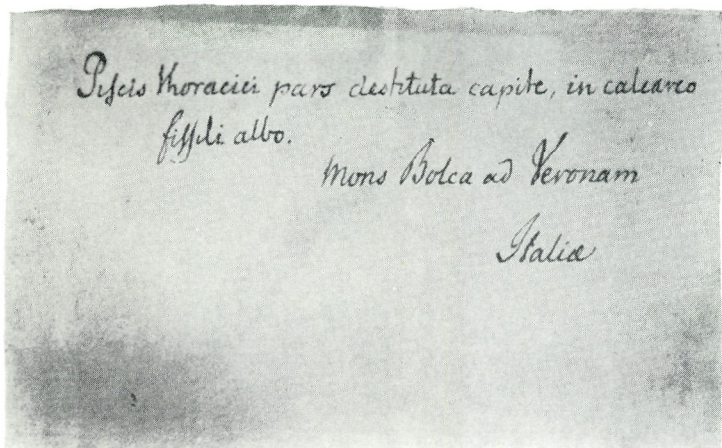 Piscis thoracici pars destituta capite, in calcareo
fissili albo.
Mons Bolca ad Veronam
Italiæ